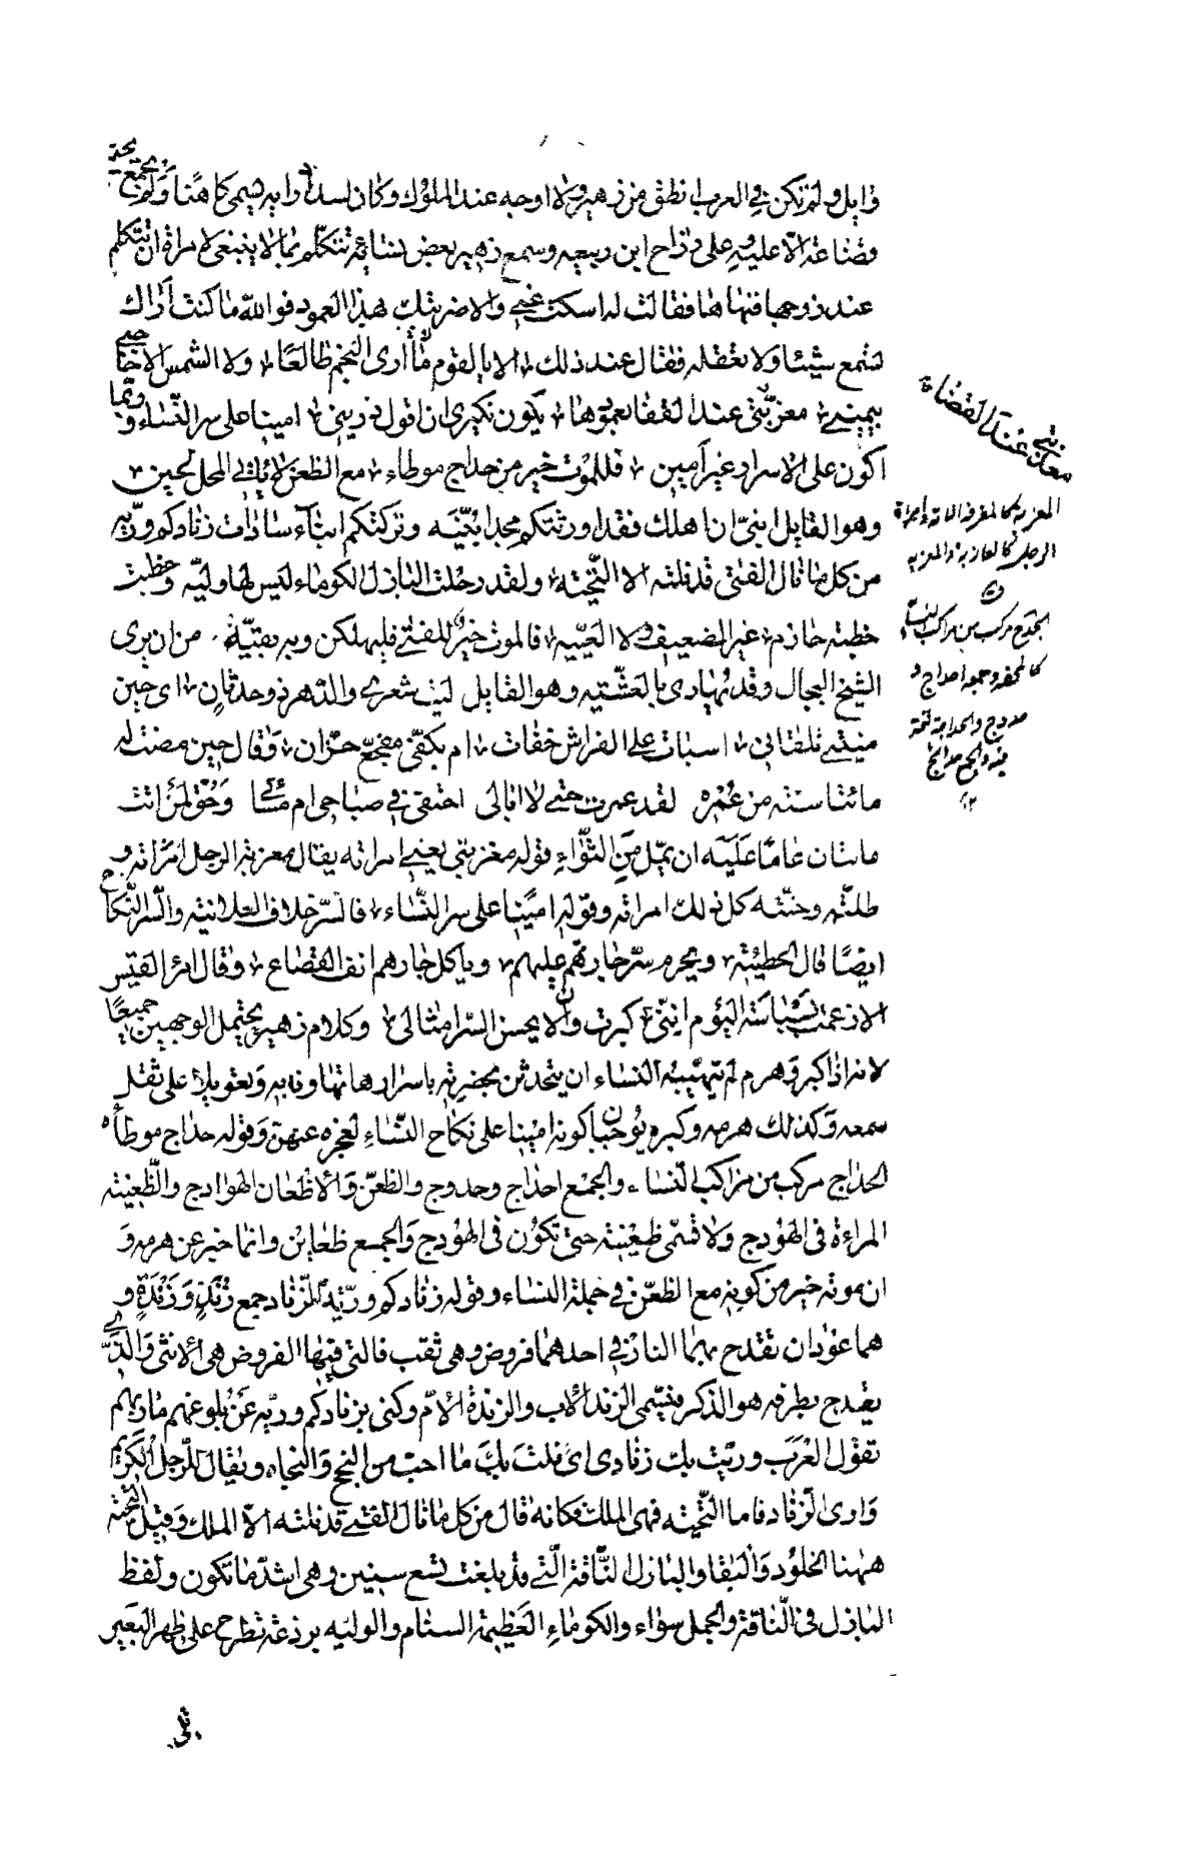 وائل ولم تكن في العرب انطق من زهير ولا اوجه عند الملوك وكان لسداد رايه يسمى كاهنا ولم تجتمع
قضاعة الا عليه وعلى رزاح ابن ربيعه وسمع زهير بعض نسائه تتكلم بما لا ينبغي لامراة ان تتكلم
عند زوجها فنهاها فقالت له اسكت عني والا ضربتك بهذا العمود فوالله ما كنت اراك
تسمع شيئا ولا تعقله فقال عند ذلك الا يا لقوم ما أرى النجم طالعًا ولا الشمس الا حاجبي
بيميني معزبتي عند القفا بعمودها يكون نكيري ان اقول ذريني امينا على سر النساء وربما
اكون على الاسرار غير أمين فللموت خير من حداج موطاء مع الظعن لا ياتي المحل لحين
وهو القايل ابنيّ ان اهلك فقد اورثتكم مجدا بَنِيَّه وتركتكم ابنآء سادات زنادكم وريّه
من كل ما نال الفتى قد نلته الا التحيّه ولقد رحلت البازل الكوماء ليس لها وليّه وخطبت
خطبة حازم غير الضعيف ولا العييّه فالموت خير للفتى فليهلكن وبه بقيّة من ان يرى
الشيخ البجال وقد يُهادى بالعشيّه وهو القايل ليت شعري والدهر ذو حدثان اي حين
منيتي تلقاني اسبات على الفراش خفات ام بكفّي مفجع حرّان وقال حين مضت له
مائتا سنة من عُمُره لقد عمرت حتى لا ابالى احتفى في صباحي ام مسائي وحُق لمن اتت
مائتان عامًا عليه ان يمل من الثواءِ قوله معزبتي يعنى امراته يقال معزبة الرجل امراته و
طلته وحنته كل ذلك امراته وقوله امينا على سر النساء فالسر خلاف العلانية والسر النكاح
ايضًا قال الحطيئة ويحرم سرّ جارتهم عليهم وياكل جارهم انف القصاع وقال امرؤ القيس
الا زعمت بسباسة اليوم اننى كبرت وان لا يحسن السر امثالى وكلام زهير يحتمل الوجهين جميعًا
لانه اذا كبر وهرم لم يتهيّبه النساء ان يتحدثن بحضرته باسرارهن تهاونا به وتعويلا على ثقل
سمعه وكذلك هرمه وكبره يوجبان كونه امينا على نكاح النساءِ لعجزه عنهن وقوله حداج موطأه
الحداج مركب من مراكب النساء والجمع احداج وحدوج والظعن والاظعان الهوادج والظعينة
المراءة فى الهودج ولا تسمّى ظعينة حتى تكون فى الهودج والجمع ظعائن وانما خبر عن هرمه و
ان موته خير من كونه مع الظعن في جملة النساء وقوله زنادكم وريّة الزناد جمع زند وزندة و
هما عودان تقدح بهما النار في احدهما فروض وهى ثقب فالتي فيها الفروض هى الانثى والذي
يقدح بطرفه هو الذكر فتسمى الزند الاب والزندة الامّ وكنى بزنادكم وريه عن بلوغهم ماربهم
تقول العرب وريت بك زنادى اي نلت بك ما احب من النجح والنجاه ويقال للرجل الكريم
وارى الزناد فاما التحيّه فهى الملك فكانه قال من كل ما نال الفتى قد نلته الا الملك وقيل التحية
ههنا الخلود والبقا والبازل الناقة التي قد بلغت تسع سنين وهى اشد ما تكون ولفظ
البازل فى الناقة والجمل سواء والكوماءِ العظيمة السنام والوليه برذعة تطرح على ظهر البعير
معذبتي عند القضاة
المعزبة كالمغرفة الامة وامراة
الرجل كالعازبة والمعزبه
الحدج مركب من مراكب النساء
كالمحفه وجمعه احداج و
حدوج والحداجة لغة
فيه والجمع حدائج
١٢